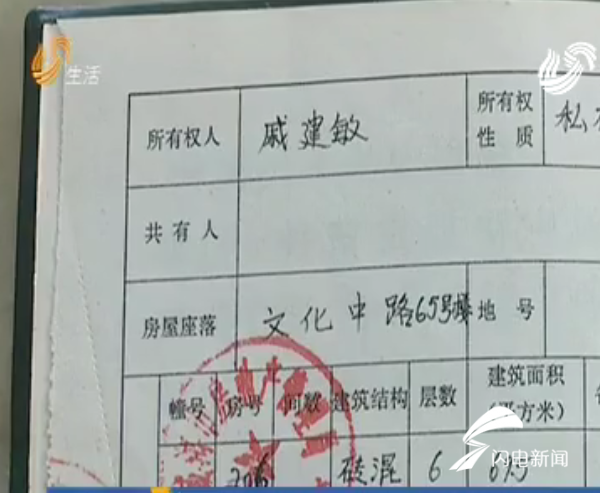 生活
所有权人 戚建敏 所有权性质 私
共有人
房屋座落 文化中路65号楼 地号
幢号 房号 间数 建筑结构 层数 建筑面积(平方米)
砖混 6
闪电新闻